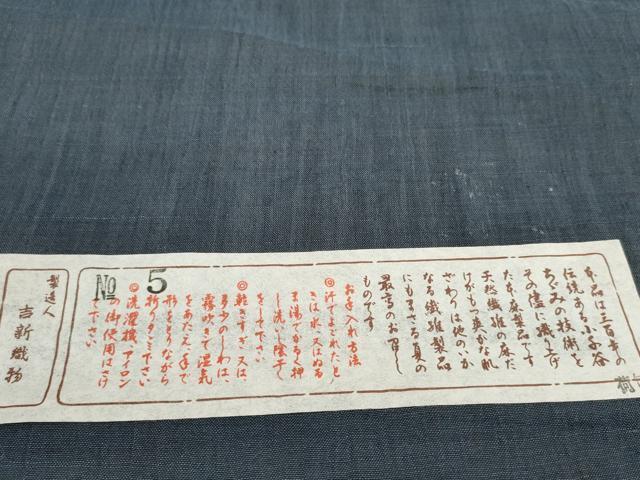 本品は三百年の
伝統ある小千谷
ちぢみの技術を
その儘に織り上げ
た本麻製品です
天然繊維の麻だ
けがもつ爽かな肌
ざわりは他のいか
なる繊維製品
にもまさる真の
最高のお召し
ものです
お手入れ方法
◎汗でよごれたと
きは水又はぬる
ま湯でかるく押
し洗いし陰干し
をして下さい
◎乾きすぎ又は、
多少のしわは、
霧吹きで湿気
をあたえ、手で
形をとりながら
折りタヽミ下さい
◎洗濯機、アイロン
の御使用はさけ
て下さい
№ 5
製造人
吉新織物